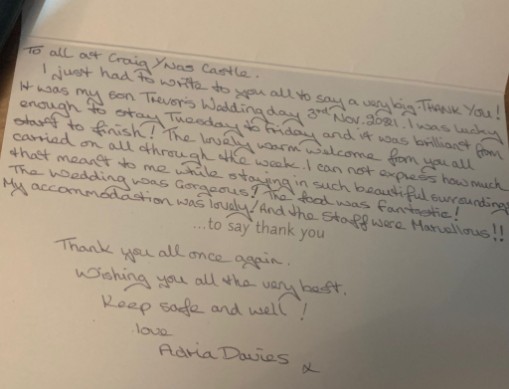 To all at Craig Ynos Castle.
I just had to write to you all to say a very big THANK YOU!
It was my son Trevor's Wedding day 3rd Nov. 2021. I was lucky
enough to stay Tuesday to Friday and it was brilliant from
start to finish! The lovely warm welcome from you all
carried on all through the week. I can not express how much
that meant to me while staying in such beautiful surroundings
The Wedding was Gorgeous! The food was fantastic!
My accommodation was lovely! And the Staff were Marvellous!!
...to say thank you
Thank you all once again.
Wishing you all the very best.
Keep safe and well!
love
Adria Davies x